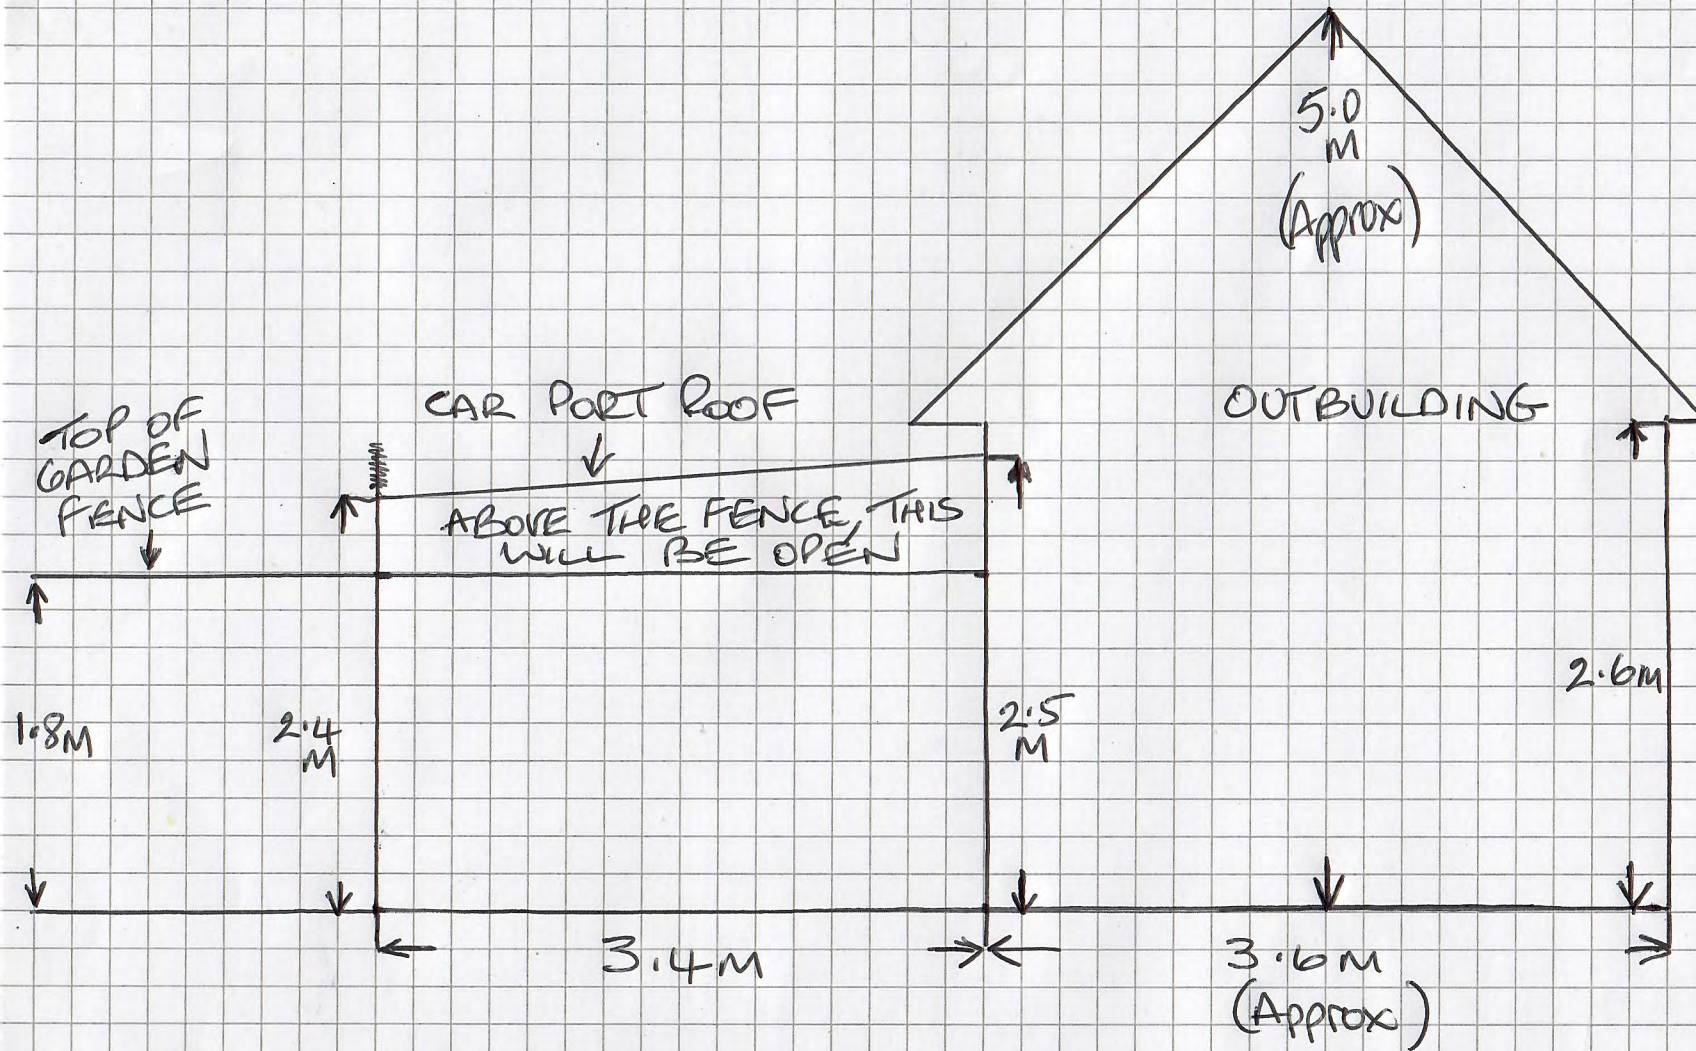 5.0
M
(Approx)
CAR PORT ROOF
OUTBUILDING
TOP OF
GARDEN
FENCE
ABOVE THE FENCE, THIS
WILL BE OPEN
1.8M
2.4
M
2.5
M
2.6M
3.4M
3.6M
(Approx)